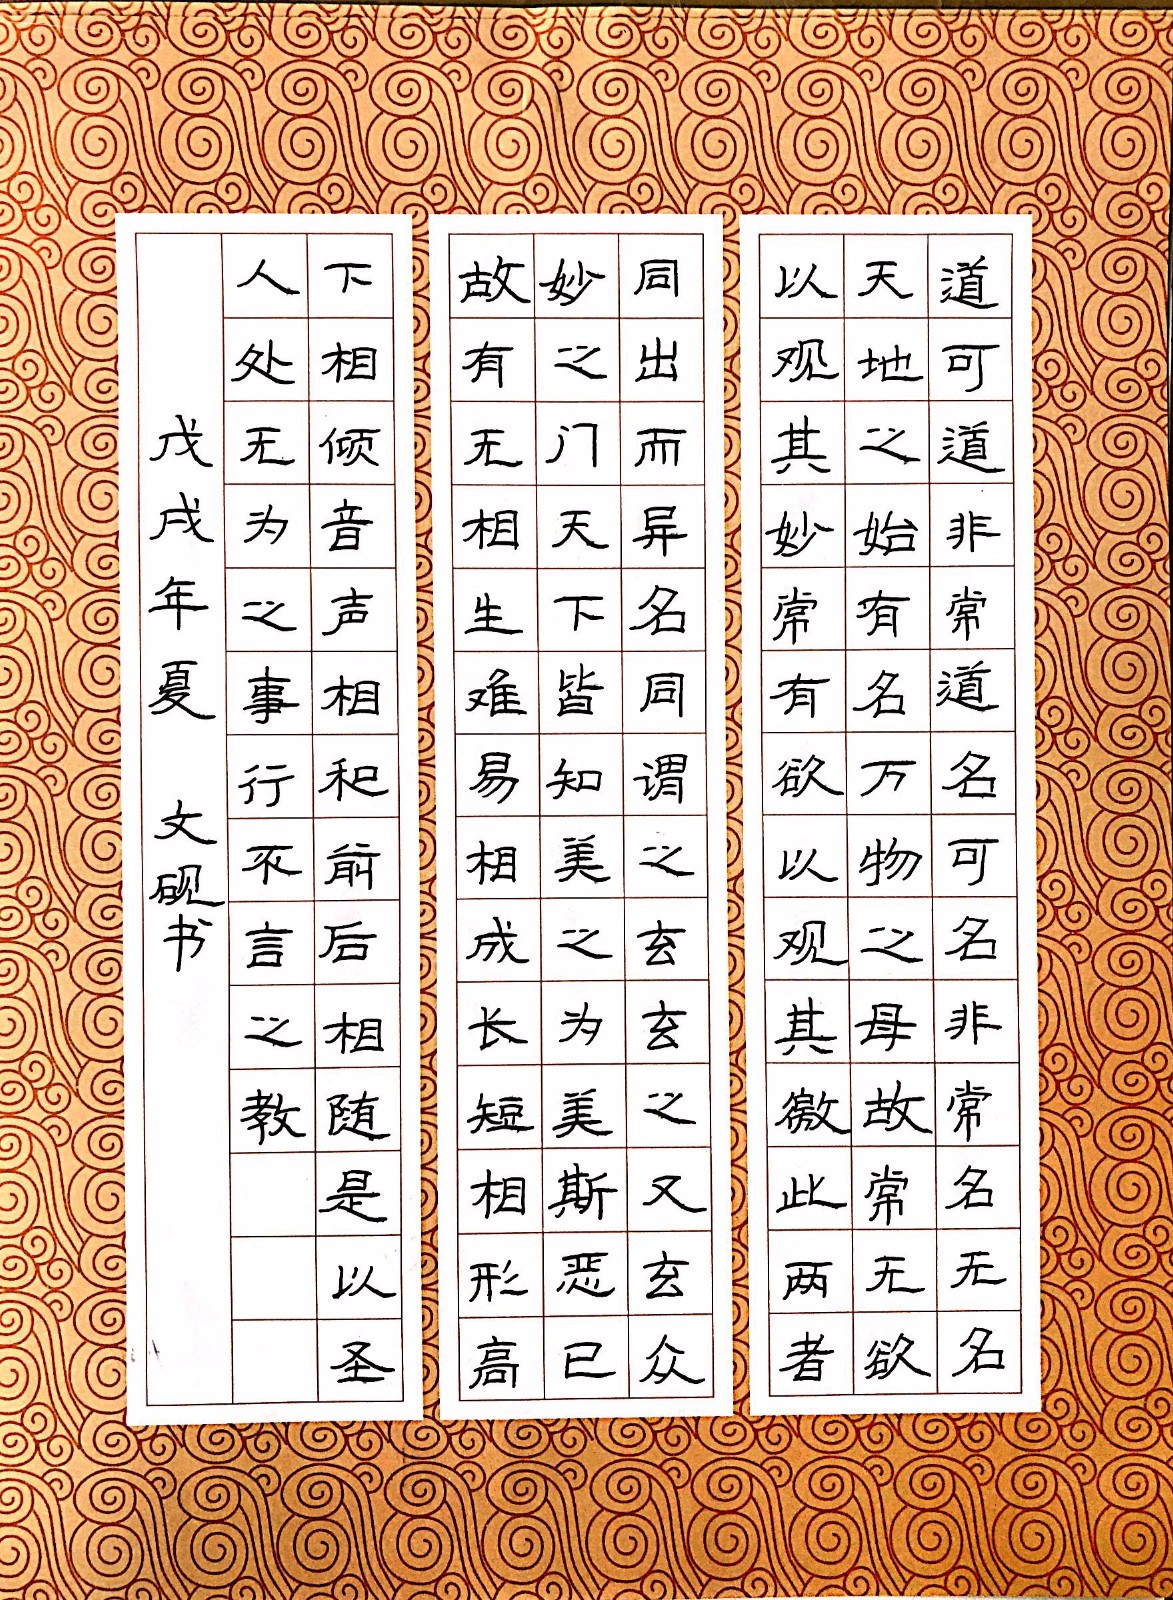 道可道非常道名可名非常名无名
天地之始有名万物之母故常无欲
以观其妙常有欲以观其徼此两者
同出而异名同谓之玄玄之又玄众
妙之门天下皆知美之为美斯恶已
故有无相生难易相成长短相形高
下相倾音声相和前后相随是以圣
人处无为之事行不言之教
戊戌年夏 文砚书